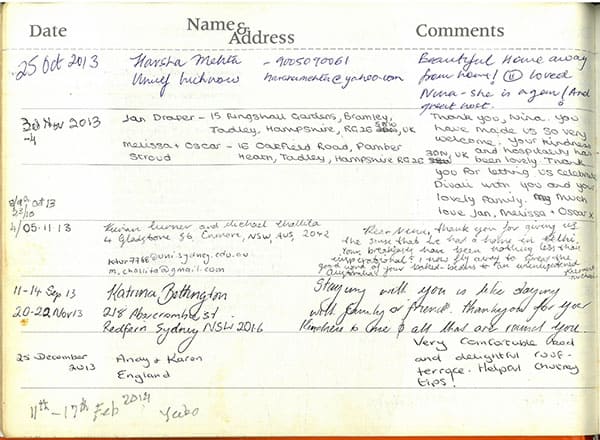 Date Name & Address Comments
25 Oct 2013 Harsha Mehta - 9005090061 Beautiful Home away
Lucknow harshamehta@yahoo.com from home! loved
Nina - she is a gem! And
great host.
3rd Nov 2013 Jan Draper - 15 Ringshall Gardens, Bramley, Thank you, Nina. You
-4 Tadley, Hampshire, RG26 UK have made us so very
welcome. Your kindness
Melissa + Oscar - 16 Oakfield Road, Pamber and hospitality has
Stroud Heath, Tadley, Hampshire RG26 3DN, UK been lovely. Thank
you for letting us celebrate
Divali with you and your
lovely family. Much
love Jan, Melissa + Oscar x
Oct 13
4/05.11.13 turner and Michael Challita Dear Nina, thank you for giving us
4 Gladstone St, Enmore, NSW, AUS, 2042 the sense that we had a home in Delhi.
Your breakfasts have been nothing less than
ktur7768@uni.sydney.edu.au inspirational; I now fly away to the
m.challita@gmail.com good word of your baked-beans to an
Australia!
11-14 Sep 13 Katrina Bottington Staying with you is like staying
20-22 Nov 13 218 Abercrombie st. with family or friend. Thankyou for your
Redfern Sydney NSW 2016 kindness to me & all that are round you.
25 December Andy + Karen Very comfortable bed
2013 England and delightful roof-
terrace. Helpful chutney
tips!
11th - 17th Feb 2014